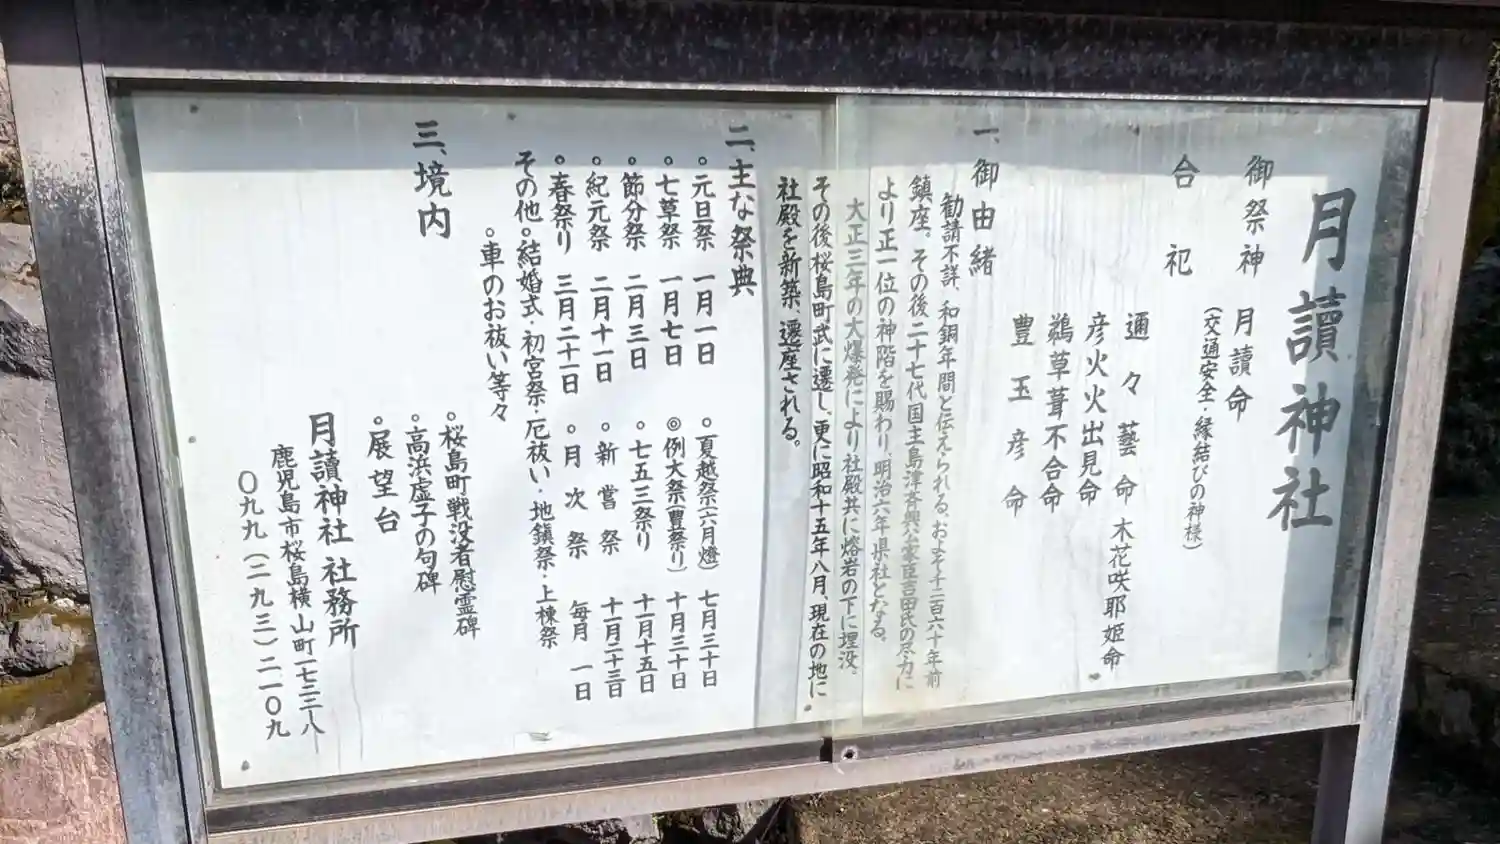 月讀神社
御祭神 月讀命
(交通安全・縁結びの神様)
合祀
邇々藝命 木花咲耶姫命
彦火火出見命
鵜草葺不合命
豊玉彦命
一、御由緒
勧請不詳、和銅年間と伝えられる、およそ千二百六十年前
鎮座。その後二十七代国主島津斉興公家臣吉田氏の尽力に
より正一位の神階を賜わり、明治六年県社となる。
大正三年の大爆発により社殿共に熔岩の下に埋没。
その後桜島町武に遷し、更に昭和十五年八月、現在の地に
社殿を新築、遷座される。
二、主な祭典
○元旦祭 一月一日
○七草祭 一月七日
○節分祭 二月三日
○紀元祭 二月十一日
○春祭り 三月二十一日
○夏越祭(六月燈) 七月三十日
◎例大祭(豊祭り) 十月三十日
○七五三祭り 十一月十五日
○新嘗祭 十一月二十三日
○月次祭 毎月一日
その他○結婚式・初宮祭・厄祓い・地鎮祭・上棟祭
○車のお祓い等々
三、境内
○桜島町戦没者慰霊碑
○高浜虚子の句碑
○展望台
月讀神社 社務所
鹿児島市桜島横山町一七二二八
〇九九(二九三)二一〇九